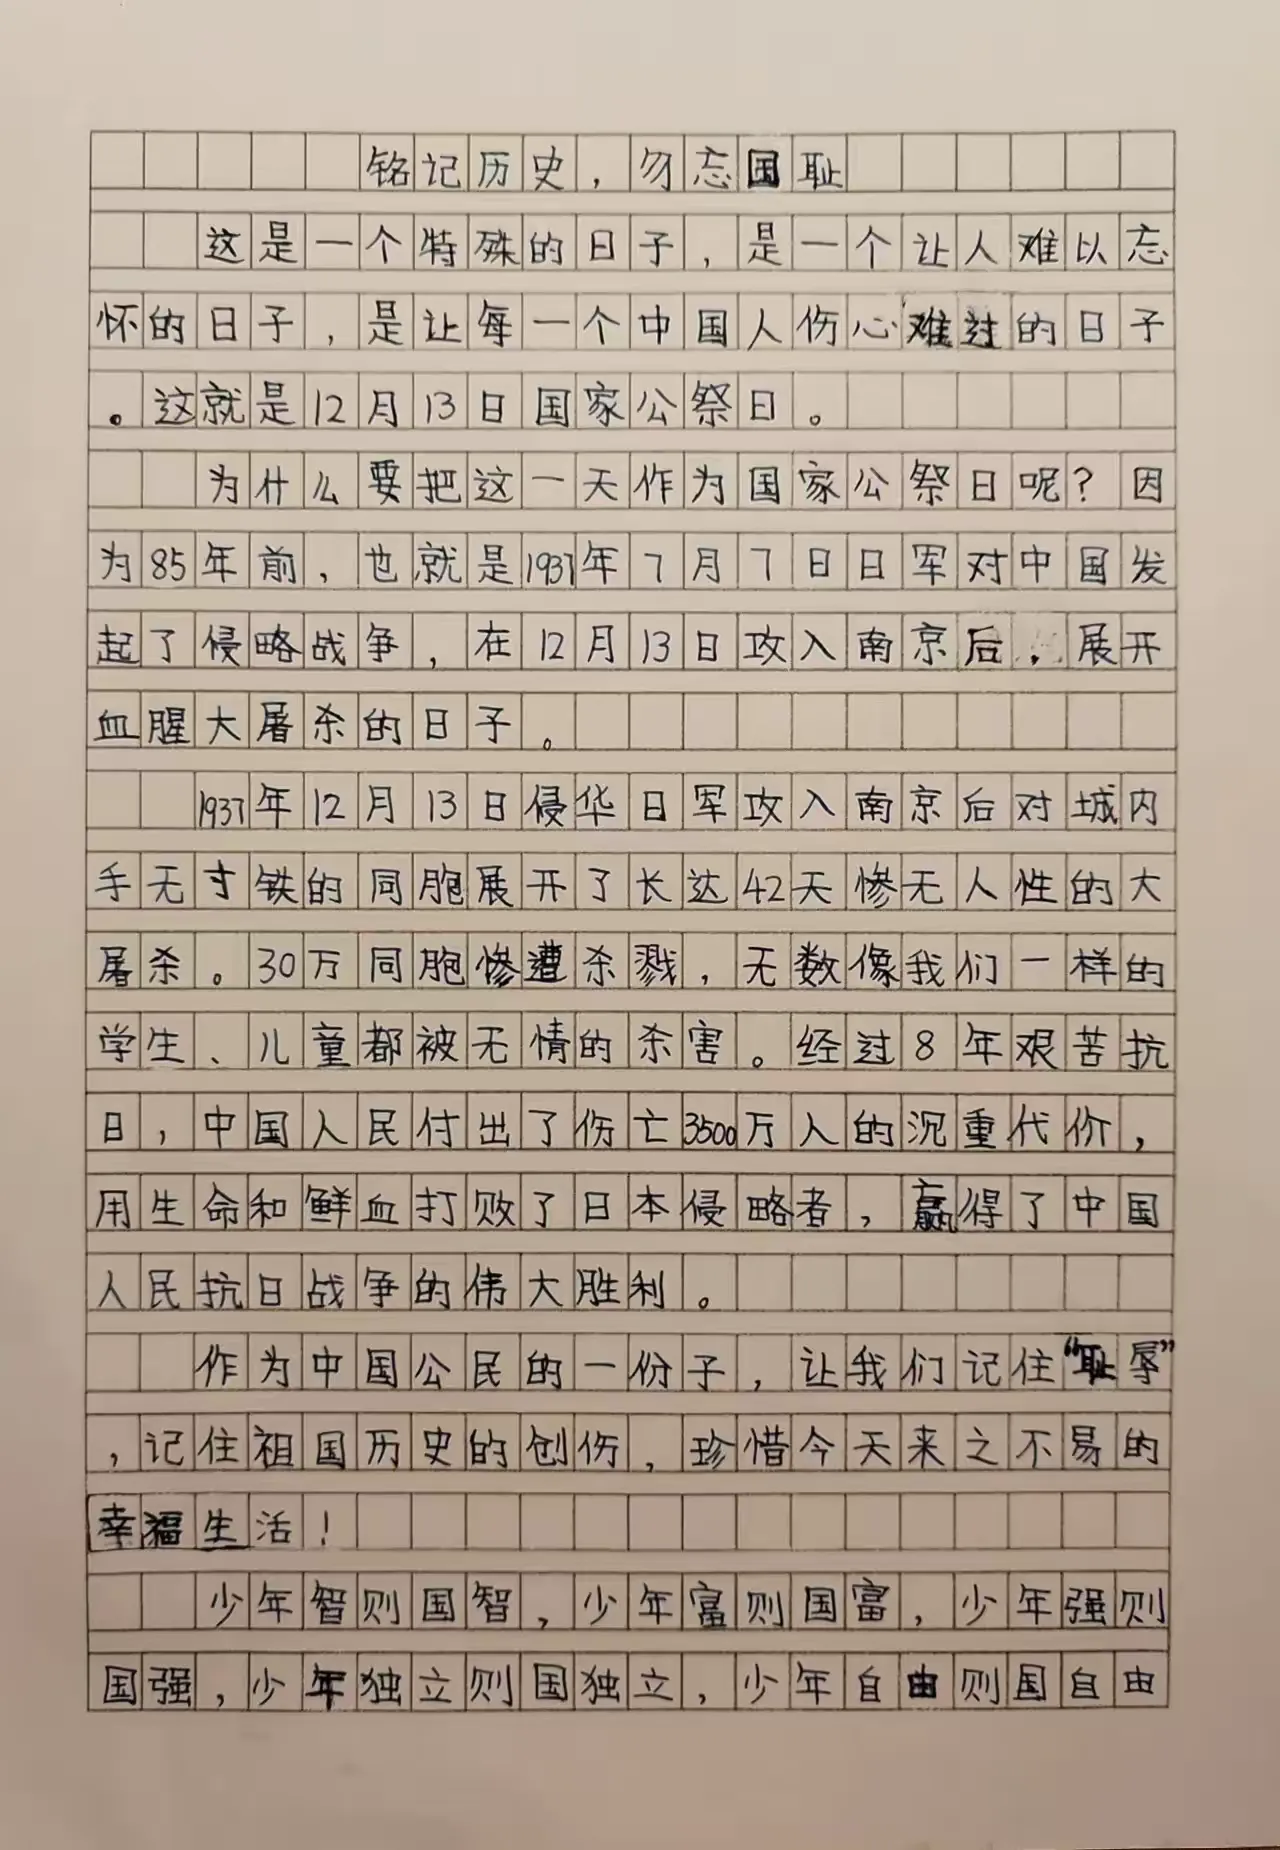 铭记历史，勿忘国耻
这是一个特殊的日子，是一个让人难以忘
怀的日子，是让每一个中国人伤心难过的日子
。这就是12月13日国家公祭日。
为什么要把这一天作为国家公祭日呢？因
为85年前，也就是1937年7月7日日军对中国发
起了侵略战争，在12月13日攻入南京后，展开
血腥大屠杀的日子。
1937年12月13日侵华日军攻入南京后对城内
手无寸铁的同胞展开了长达42天惨无人性的大
屠杀。30万同胞惨遭杀戮，无数像我们一样的
学生、儿童都被无情的杀害。经过8年艰苦抗
日，中国人民付出了伤亡3500万人的沉重代价，
用生命和鲜血打败了日本侵略者，赢得了中国
人民抗日战争的伟大胜利。
作为中国公民的一份子，让我们记住“耻辱”
，记住祖国历史的创伤，珍惜今天来之不易的
幸福生活！
少年智则国智，少年富则国富，少年强则
国强，少年独立则国独立，少年自由则国自由